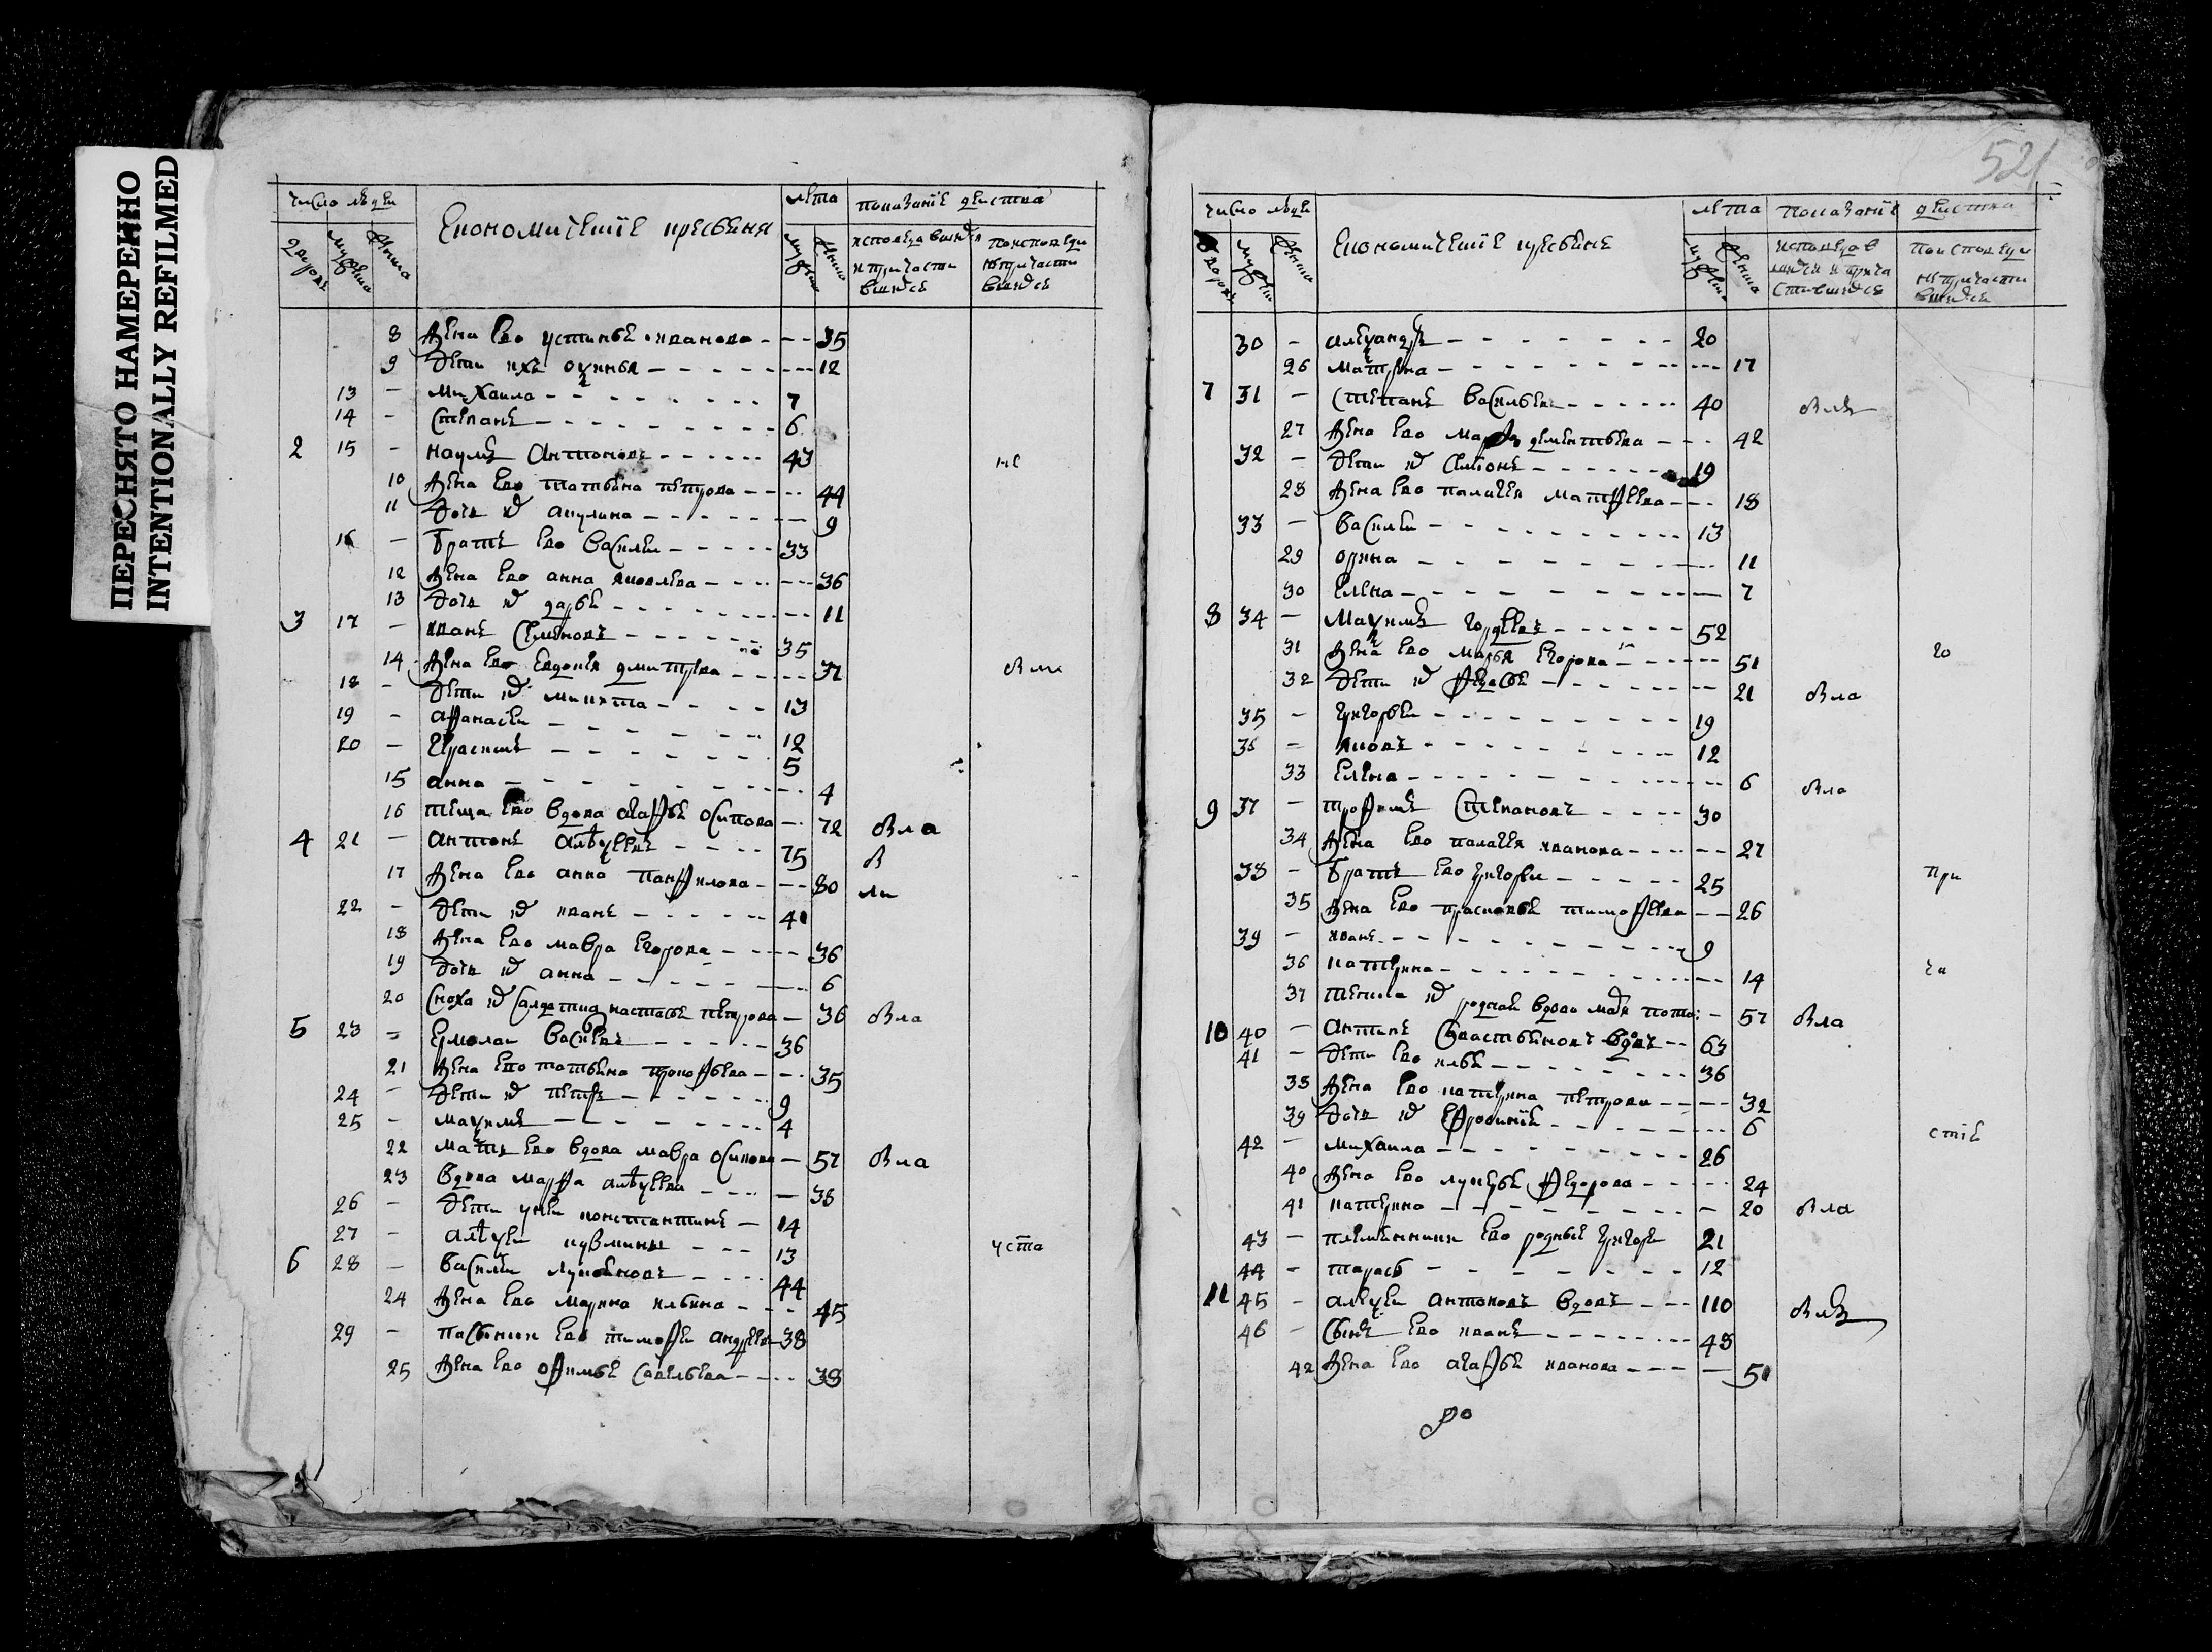 ПЕРЕСНЯТО НАМЕРЕННО
INTENTIONALLY REFILMED
число людеи
Економическїе крестьяня
лѣта
показанїе действа
дворовъ
мужеска
женска
мужеска
женска
исповедавшихся и причастившихся
по исповеди непричастившихся
8 жена ево устинья иванова - - - 35
9 дети ихъ оксинья - - - 12
13 - михаила - - - 7
14 - степанъ - - - 6
2 15 - наумъ антоновъ - - - 43 не
10 жена ево татьяна петрова - - - 44
11 дочь их акулина - - - 9
16 - братъ ево василеи - - - 33
12 жена ево анна яковлева - - - 36
13 дочь их дарья - - - 11
3 17 - иванъ семеновъ - - - 35
14 жена ево евдокия дмитрева - - - 37
18 - дети их никита - - - 13
19 - афанасеи - - - 12
20 - герасимъ - - - 5
15 анна - - - 4
16 теща ево вдова агафья осипова - 72 явла
4 21 - антонъ алексеевъ - - - 75 я
17 жена ево анна панфилова - - - 80 ли
22 - дети их иванъ - - - 41
18 жена ево мавра егорова - - - 36
19 дочь их анна - - - 6
20 сноха их салдатка настасья петрова - 36 явла
5 23 - ермолаи васильевъ - - - 36
21 жена ево татьяна прокофьева - - - 35
24 - дети их петръ - - - 9
25 - максимъ - - - 4
22 мать ево вдова мавра осипова - 57 явла
23 вдова марфа алексеева - - - 38
26 - дети у неи константинъ - 14
27 - алексеи кузмины - - - 13 уста
6 28 - василеи лукояновъ - - - 44
24 жена ево марина ильина - - - 45
29 - пасынки ево тимофеи андреевъ 38
25 жена ево офимья савельева - - - 38
521
число людеи
Економическїе крестьяне
лѣта
показанїе
действа
дворовъ
мужеска
женска
мужеска
женска
исповедавшихся и причастившихся
по исповеди непричастившихся
30 - александръ - - - 20
26 матрена - - - 17
7 31 - степанъ васильевъ - - - 40
27 жена ево марфа дементьева - - - 42
32 - дети их семионъ - - - 19
28 жена ево палагея матфеева - - - 18
33 - василеи - - - 13
29 орина - - - 11
30 елена - - - 7
8 34 - максимъ гордеевъ - - - 52
31 жена ево марья егорова - - - 51 го
32 дети их федосья - - - 21 явла
35 - григореи - - - 19
36 - яковъ - - - 12
33 елена - - - 6 явла
9 37 - трофимъ степановъ - - - 30
34 жена ево палагея иванова - - - 27
38 - братъ ево григореи - - - 25 при
35 жена ево прасковья тимофеева - - 26
39 - иванъ - - - 9
36 катерина - - - 14 ча
37 тетка их родная вдова марья - 57 явла
10 40 - антипъ савастьяновъ вдовъ - - 63
41 - дети ево илья - - - 36
38 жена ево катерина петрова - - - 32
39 дочь их ефросиния - - - 6
42 - михаила - - - 26 стіе
40 жена ево лукерья федорова - - - 24
41 катерина - - - 20 явла
43 - племянники ево родные григореи 21
44 - тарасъ - - - 12
11 45 - алексеи антоновъ вдовъ - - 110
46 - сынъ ево иванъ - - - 48
42 жена ево агафья иванова - - - 51